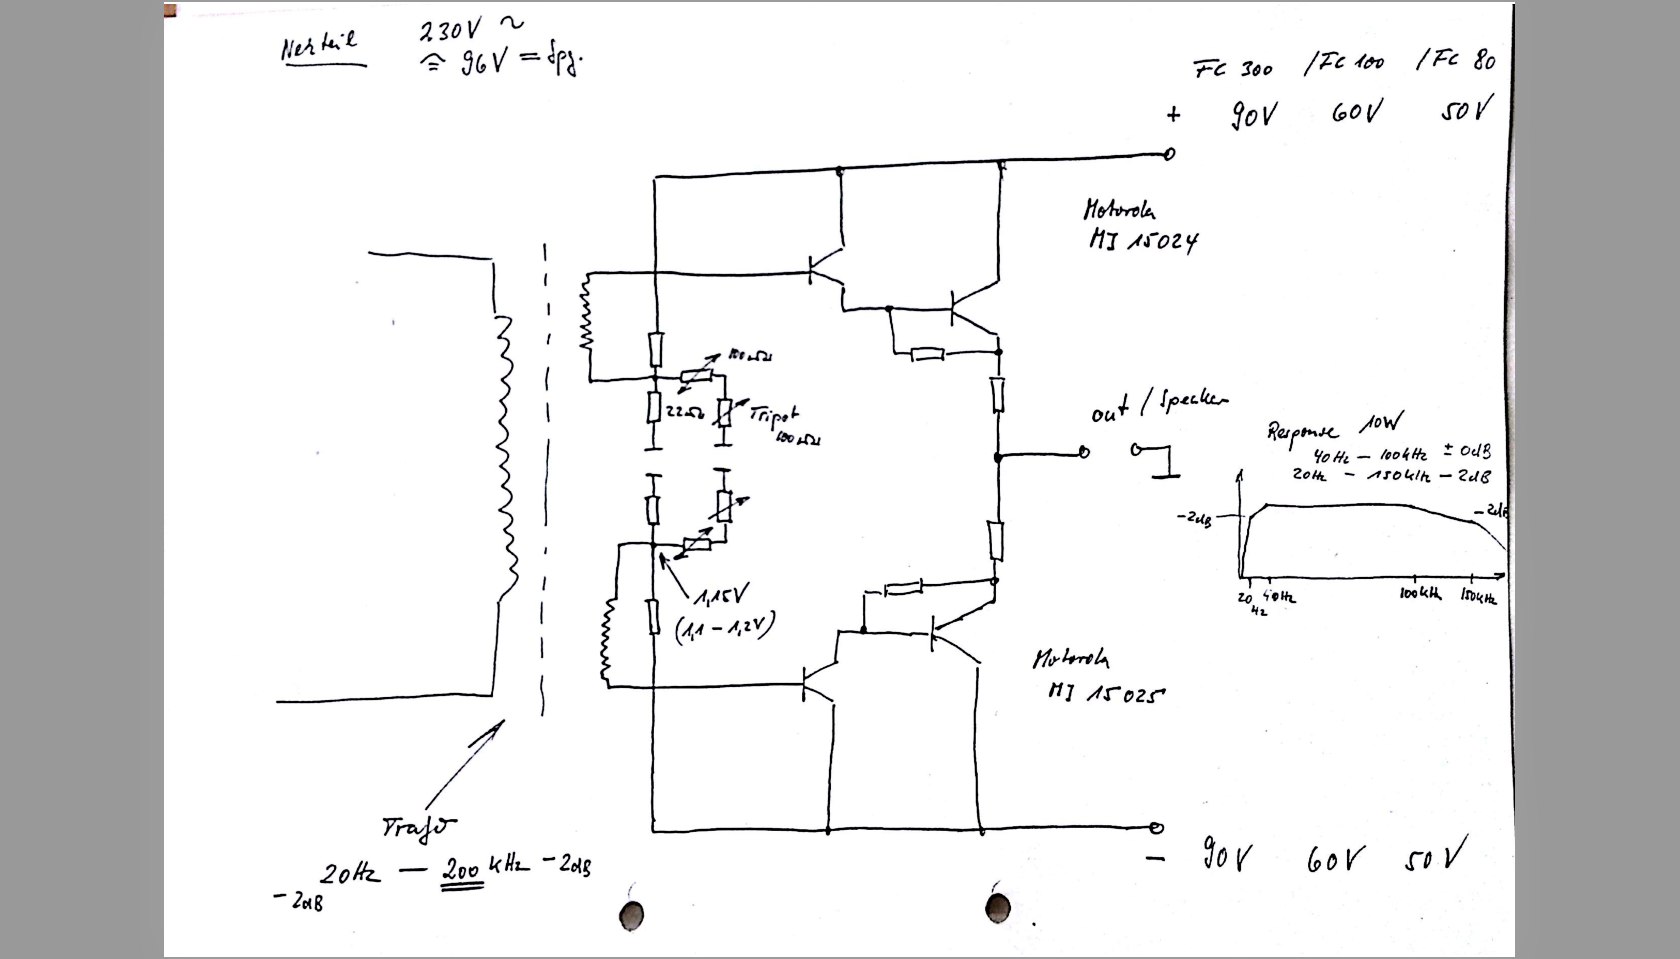 Netzteil
230V ~
≙ 96V = Spg.
FC 300 / FC 100 / FC 80
+ 90V 60V 50V
Motorola
MJ 15024
100Ω
22Ω
Tripot
100Ω
out / Speaker
Response 10W
40Hz – 100kHz ± 0dB
20Hz – 150kHz – 2dB
-2dB
-2dB
20 Hz 40Hz 100kHz 150kHz
1,15V
(1,1 – 1,2V)
Motorola
MJ 15025
Trafo
20Hz — 200 kHz -2dB
-2dB
- 90V 60V 50V